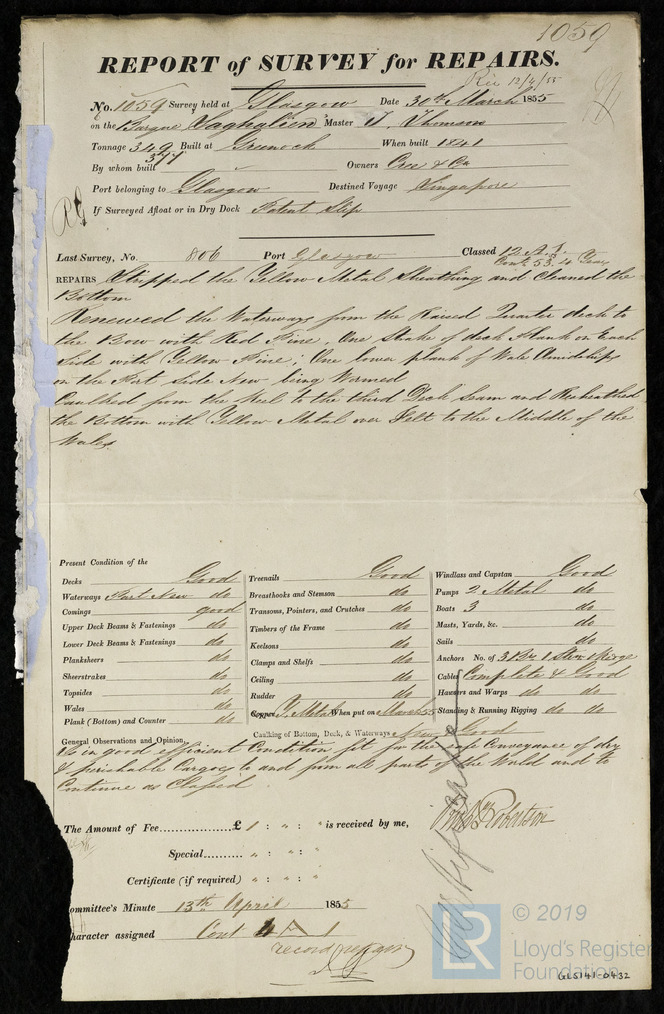 1059
REPORT of SURVEY for REPAIRS.
Rec 12/4/55
No. 1059 Survey held at Glasgow Date 30th March 1855
on the Barque Taglioni Master J. Thomson
Tonnage 349 Built at Greenock When built 1841
377
By whom built Owners Cree & Co
Port belonging to Glasgow Destined Voyage Singapore
If Surveyed Afloat or in Dry Dock Patent Slip
Last Survey, No. 806 Port Glasgow Classed 12 A.1.
Cont. 53. 4 Years
REPAIRS Stripped the Yellow Metal Sheathing and Cleaned the
Bottom
Renewed the Waterways from the Raised Quarter deck to
the Bow with Red Pine, One Strake of deck Plank on Each
Side with Yellow Pine; One lower plank of Wale Amidships
on the Port Side New being Wormed
Caulked from the Keel to the third Deck Seam and Resheathed
the Bottom with Yellow Metal over Felt to the Middle of the
Wales.
Present Condition of the
Decks Good
Waterways Part New do
Comings good
Upper Deck Beams & Fastenings do
Lower Deck Beams & Fastenings do
Planksheers do
Sheerstrakes do
Topsides do
Wales do
Plank (Bottom) and Counter do
Treenails Good
Breasthooks and Stemson do
Transoms, Pointers, and Crutches do
Timbers of the Frame do
Keelsons do
Clamps and Shelfs do
Ceiling do
Rudder do
Copper Y. Metal When put on March 55
Caulking of Bottom, Deck, & Waterways New & Good
Windlass and Capstan Good
Pumps 2 Metal do
Boats 3 do
Masts, Yards, &c. do
Sails do
Anchors No. of 3 Br. 1 Stem Kedge
Cables Complete & Good
Hawsers and Warps do do
Standing & Running Rigging do do
General Observations and Opinion,
Is in good efficient Condition, fit for the safe Conveyance of dry
& perishable Cargoes to and from all parts of the World and to
Continue as Classed
The Amount of Fee £ 1 : " : " is received by me,
Robertson
Special " : " : "
Certificate (if required) " : " : "
ommittee's Minute 13th April 1855
haracter assigned Cont 4 A 1
record
© 2019
LR
Lloyd's Register
Foundation
GLS141-0432